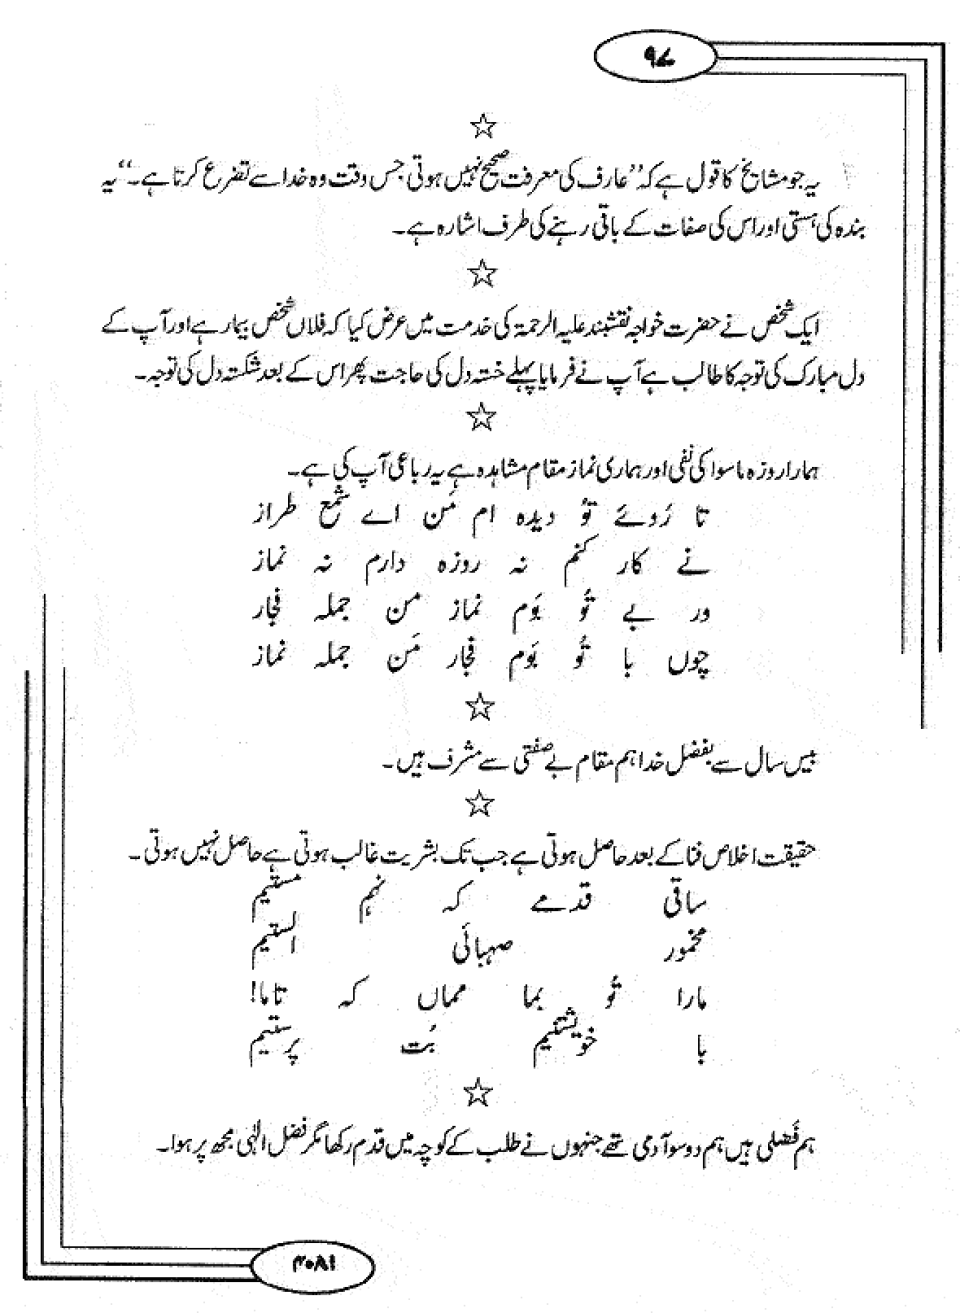 ۹۷
☆
یہ جو مشایخ کا قول ہے کہ ’’عارف کی معرفت صحیح نہیں ہوتی جس وقت وہ خدا سے تضرع کرتا ہے۔‘‘ یہ
بندہ کی ہستی اور اس کی صفات کے باقی رہنے کی طرف اشارہ ہے۔
☆
ایک شخص نے حضرت خواجہ نقشبند علیہ الرحمۃ کی خدمت میں عرض کیا کہ فلاں شخص بیمار ہے اور آپ کے
دل مبارک کی توجہ کا طالب ہے آپ نے فرمایا پہلے خستہ دل کی حاجت پھر اس کے بعد شکستہ دل کی توجہ۔
☆
ہمارا روزہ ماسوا کی نفی اور ہماری نماز مقام مشاہدہ ہے یہ رباعی آپ کی ہے۔
تا رُوئے تُو دیدہ ام مَن اے شمع طراز
نے کار کنم نہ روزہ دارم نہ نماز
ور بے تُو بَوم نماز من جملہ فجار
چوں با تُو بَوم فجار مَن جملہ نماز
☆
بیس سال سے بفضل خدا ہم مقام بے صفتی سے مشرف ہیں۔
☆
حقیقت اخلاص فنا کے بعد حاصل ہوتی ہے جب تک بشریت غالب ہوتی ہے حاصل نہیں ہوتی۔
ساقی قدمے کہ نہم مستیم
مخمور صہبائی الستیم
مارا تُو بما مماں کہ تاما!
با خویشتنیم بُت پرستیم
☆
ہم فَضلی ہیں ہم دو سو آدمی تھے جنہوں نے طلب کے کوچہ میں قدم رکھا مگر فضل الٰہی مجھ پر ہوا۔